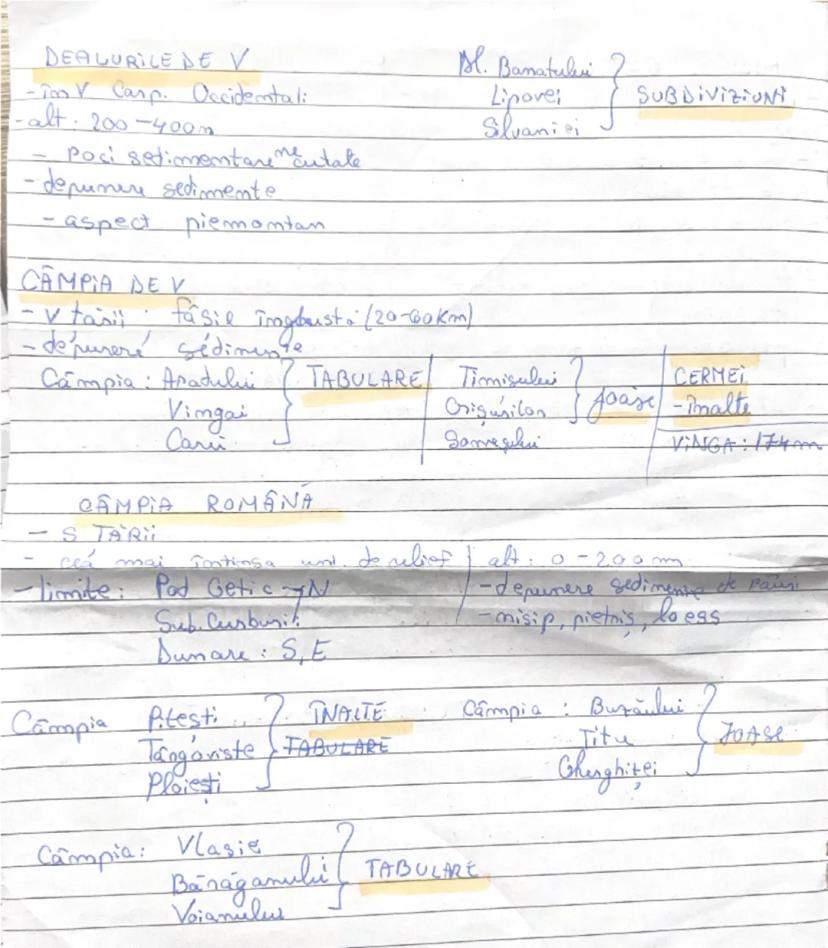 DEALURILE DE V
Dl. Banatului
Lipovei
Silvaniei
SUBDIVIZIUNI
- în V Carp. Occidentali
- alt: 200-400m
- roci sedimentare necutate
- depunere sedimente
- aspect piemontan
CÂMPIA DE V
- V țării: fâșie îngustă (20-60km)
- depunere sedimente
Câmpia: Aradului
Vingăi
Carii
TABULARE
Timișului
Crișurilor
Someșului
joase
CERMEI
- înalte
VINGA: 174m
CÂMPIA ROMÂNĂ
- S TĂRII
- cea mai întinsa uni. de relief
alt: 0-200m
- limite: Pod Getic → N
Sub. Curburii
Dunare: S, E
- depunere sedimente de râuri
- nisip, pietriș, loess
Câmpia Pitești
Târgoviste
Ploiești
ÎNALTE
TABULARE
Câmpia: Buzăului
Titu
Gherghiței
JOASE
Câmpia: Vlasie
Bărăganului
Voianului
TABULARE